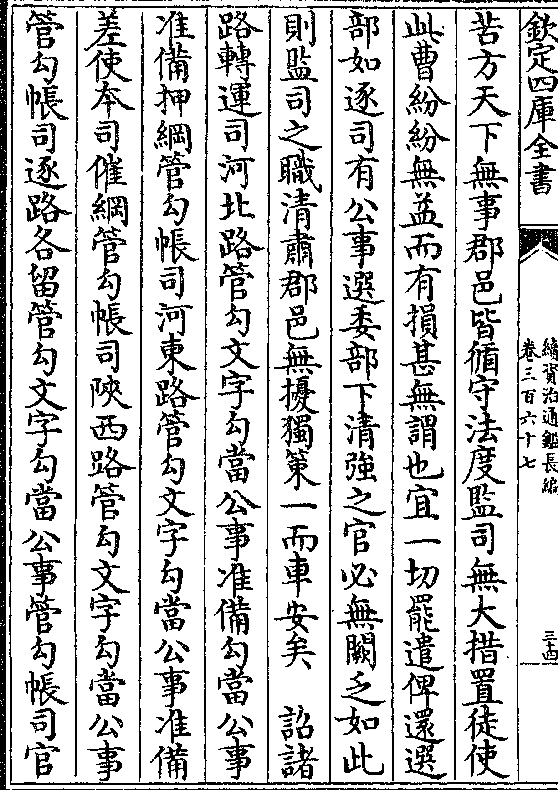 欽定四庫全書
續資治通鑑長編
卷三百六十七
三十四
苦方天下無事郡邑皆循守法度監司無大措置徒使
此曹紛紛無益而有損甚無謂也宜一切罷遣俾還選
部如逐司有公事選委部下清強之官必無闕乏如此
則監司之職清肅郡邑無擾獨策一而車安矣 詔諸
路轉運司河北路管勾文字勾當公事准備勾當公事
准備押綱管勾帳司河東路管勾文字勾當公事准備
差使本司催綱管勾帳司陝西路管勾文字勾當公事
管勾帳司逐路各留管勾文字勾當公事管勾帳司官